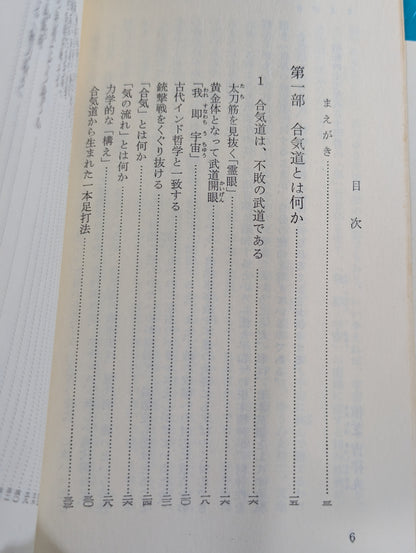 目次
まえがき 三
第一部 合気道とは何か 一五
1 合気道は、不敗の武道である 一六
太刀筋を見抜く「霊眼」 一六
黄金体となって武道開眼 一八
「我即宇宙」 二〇
古代インド哲学と一致する
銃撃戦をくぐり抜ける 二四
「合気」とは何か 二六
「気の流れ」とは何か 二八
力学的な「構え」 三〇
合気道から生まれた一本足打法
6